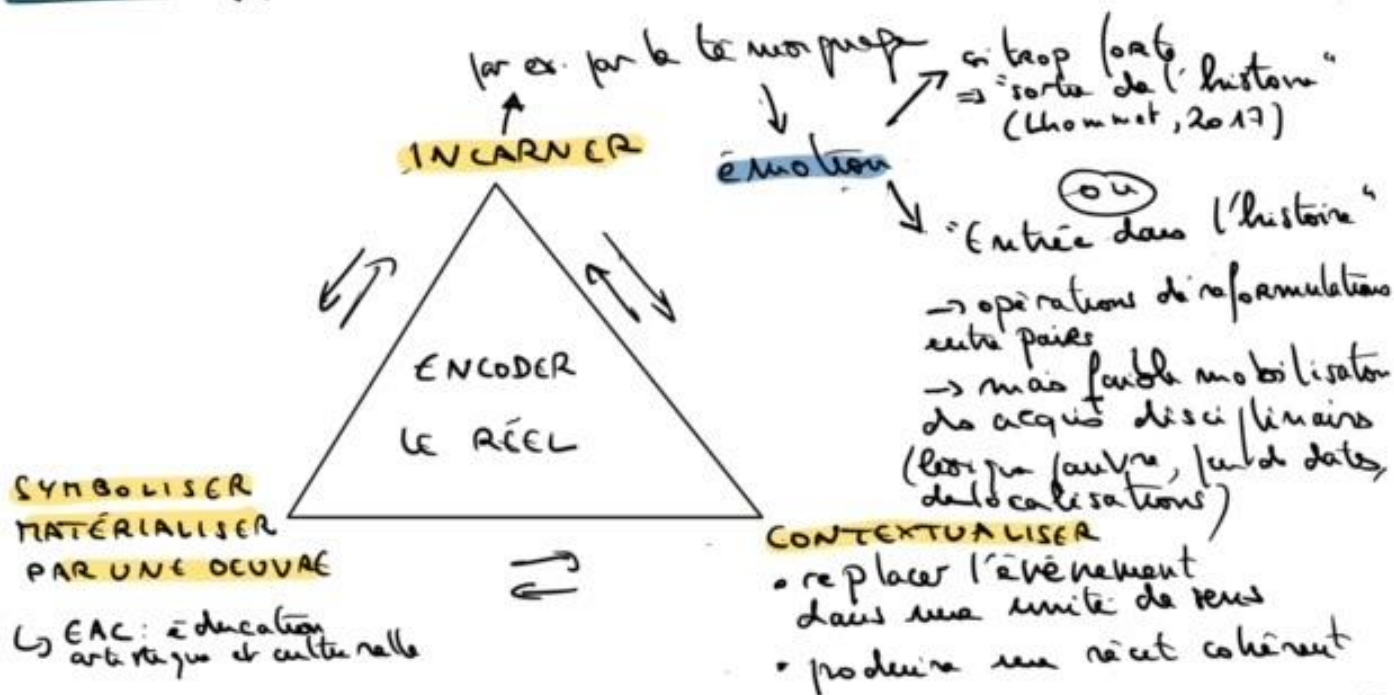 par ex. par le témoignage
si trop forte
⇒ "sortie de l'histoire"
(Lhommet, 2017)
INCARNER
émotion
ou
"Entrée dans l'histoire"
→ opérations de reformulations
entre pairs
→ mais faible mobilisation
des acquis disciplinaires
(lexique pauvre, peu de dates,
de localisations)
ENCODER
LE RÉEL
SYMBOLISER
MATÉRIALISER
PAR UNE OEUVRE
↳ EAC : éducation
artistique et culturelle
CONTEXTUALISER
• replacer l'évènement
dans une unité de sens
• produire un récit cohérent